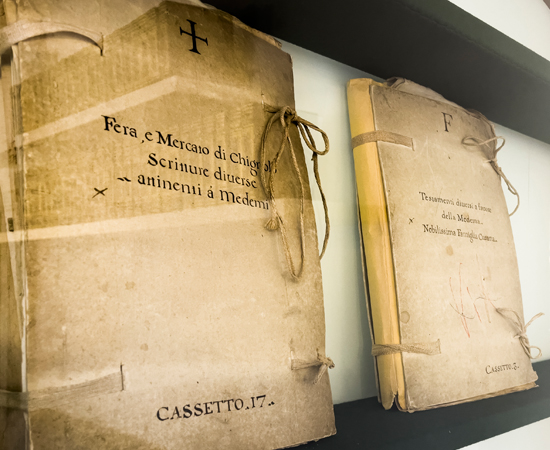 Fera, e Mercato di Chignol
Scritture diuerse
attinenti á Medemi
CASSETTO.17..
F
Testamenti diuersi e
della Medema
Nobilissima Famiglia
CASSETTO.